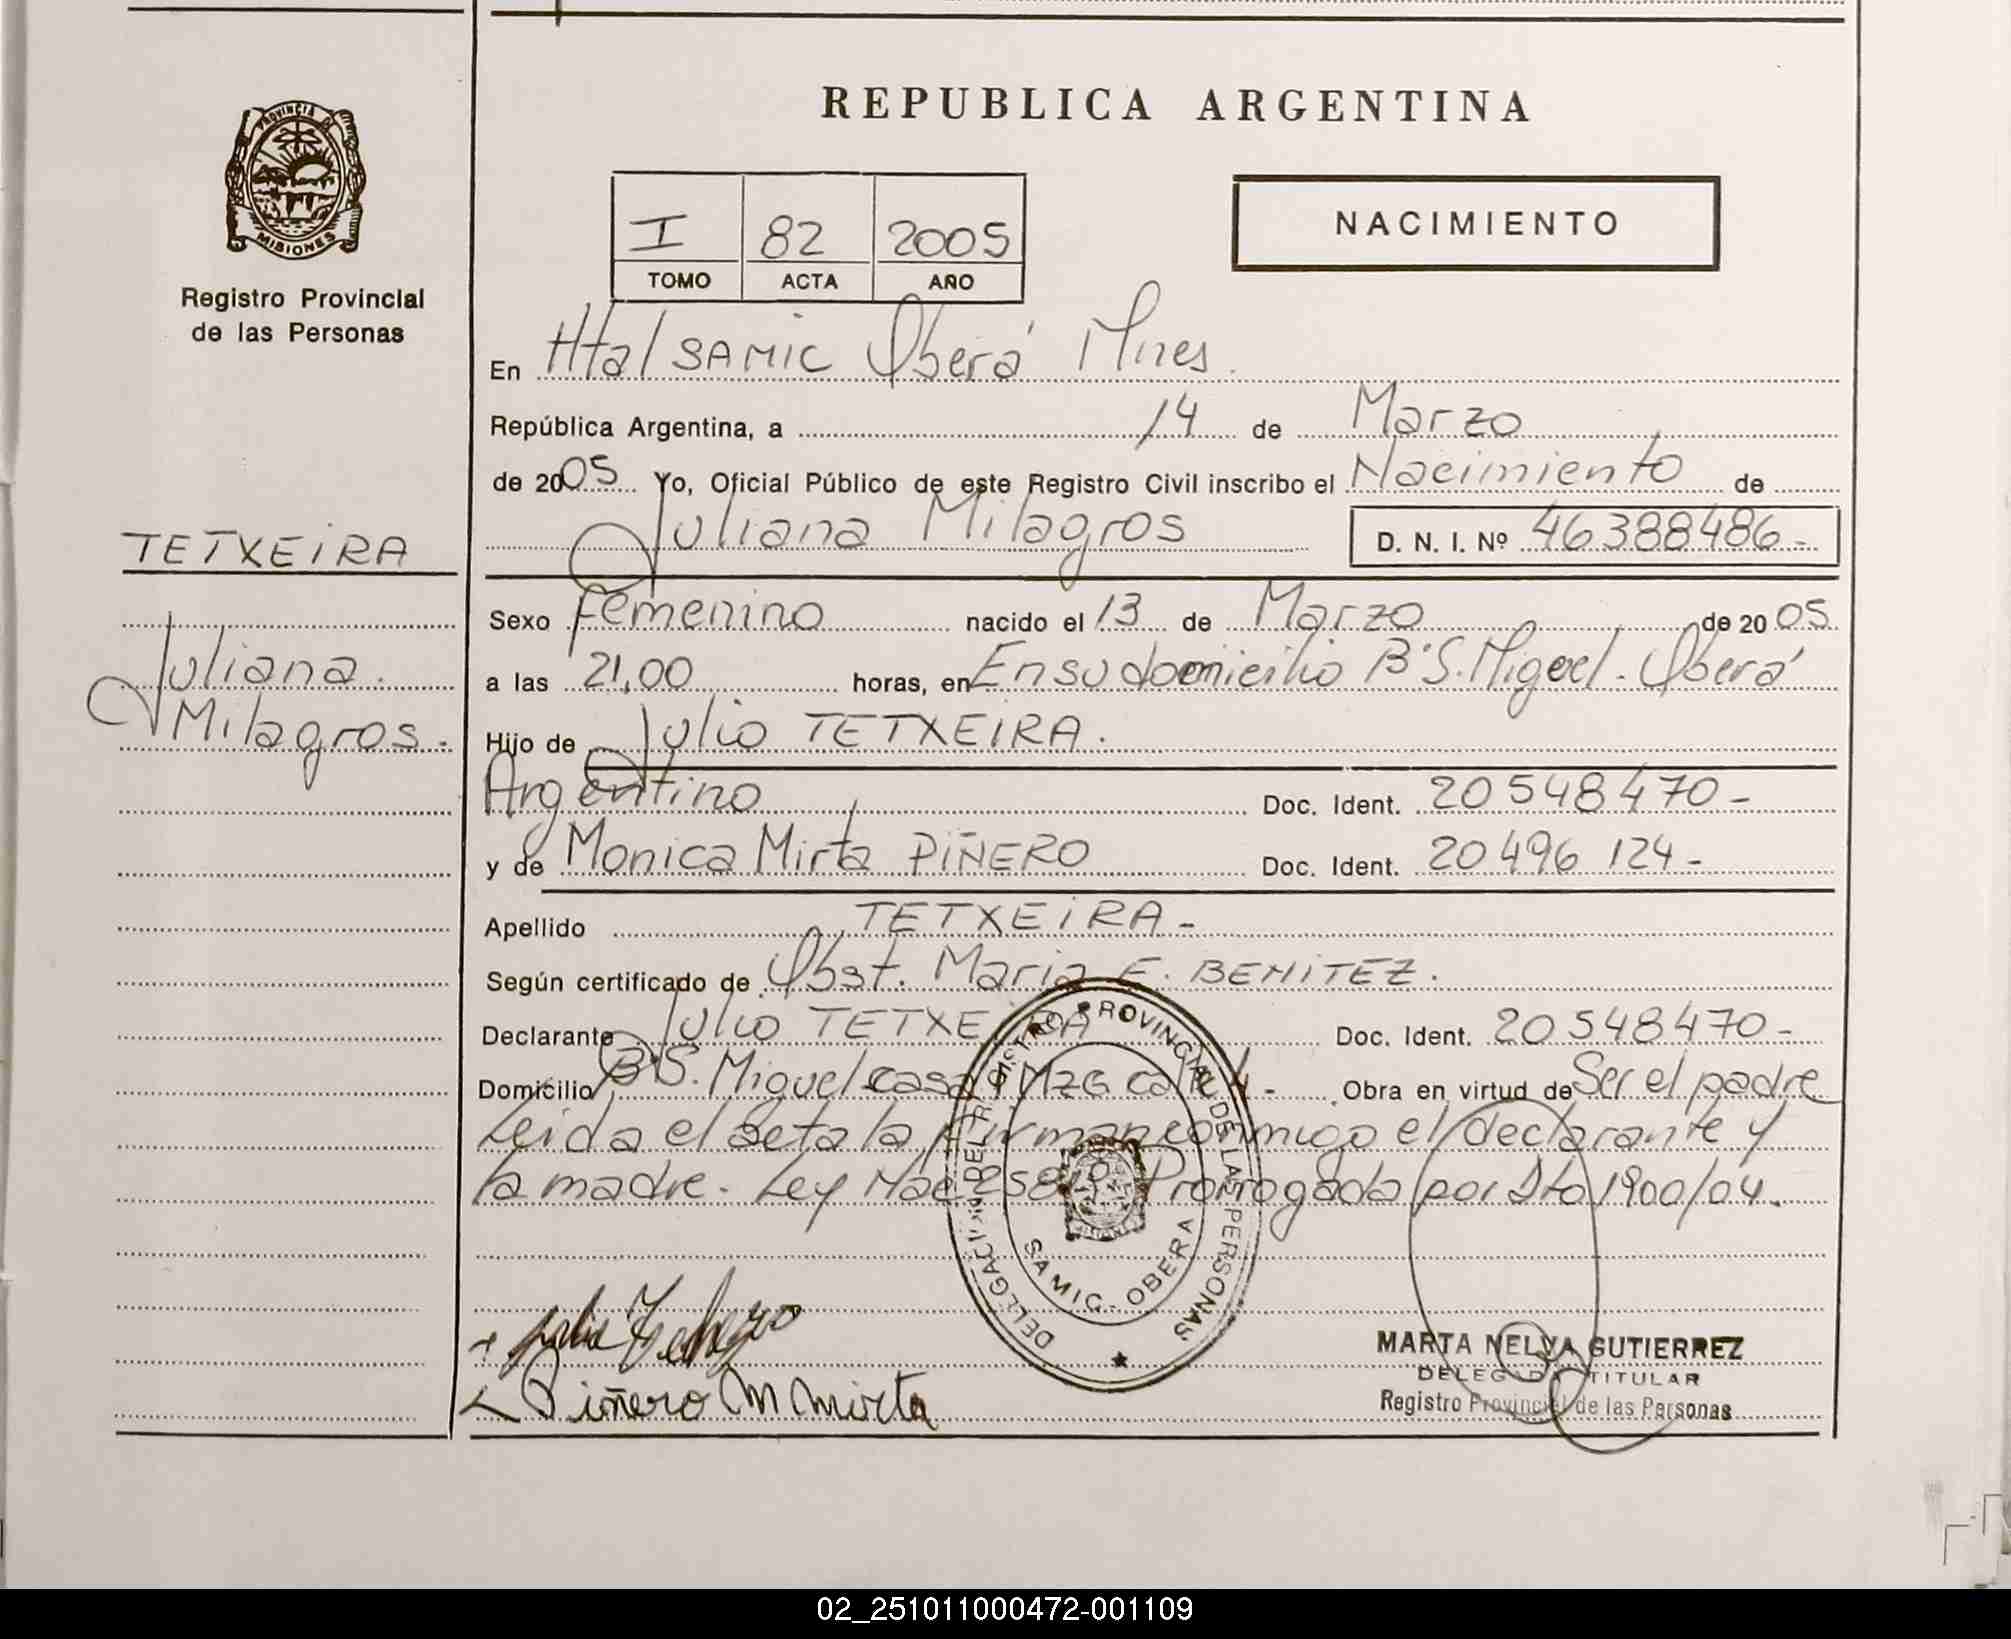 REPUBLICA ARGENTINA
PROVINCIA DE MISIONES
Registro Provincial
de las Personas
I 82 2005
TOMO ACTA AÑO
NACIMIENTO
En Htal SAMIC Oberá Mnes.
República Argentina, a 14 de Marzo
de 2005 Yo, Oficial Público de este Registro Civil inscribo el Nacimiento de
Juliana Milagros D. N. I. Nº 46388486-
TETXEIRA
Juliana
Milagros.-
Sexo Femenino nacido el 13 de Marzo de 2005
a las 21,00 horas, en En su domicilio B°S. Miguel - Oberá
Hijo de Julio TETXEIRA.
Argentino Doc. Ident. 20548470-
y de Monica Mirta PIÑERO Doc. Ident. 20496124-
Apellido TETXEIRA-
Según certificado de Obst. Maria E. BENITEZ.
Declarante Julio TETXEIRA Doc. Ident. 20548470-
Domicilio B°S. Miguel casa Mz6 Obra en virtud de Ser el padre
Leida el acta la firman conmigo el declarante y
la madre. Ley Nac Prorrogada por Dto 1900/04.
DELEGACION DEL REGISTRO PROVINCIAL DE LAS PERSONAS
SAMIC - OBERA
Piñero M Mirta
MARTA NELVA GUTIERREZ
DELEGADA TITULAR
Registro Provincial de las Personas
02_251011000472-001109